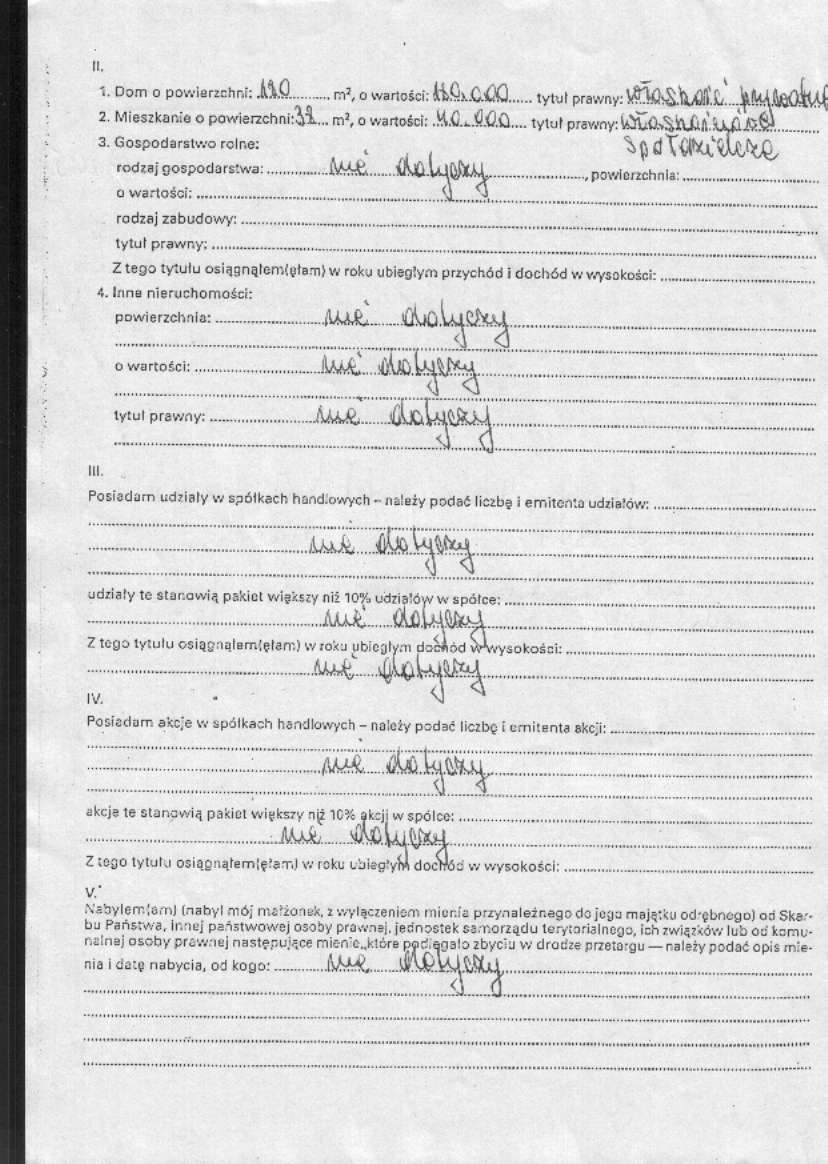 II.
1. Dom o powierzchni: 120 m², o wartości: 120.000 tytuł prawny: własność
2. Mieszkanie o powierzchni: 32 m², o wartości: 40.000 tytuł prawny:
spółdzielcze
3. Gospodarstwo rolne:
rodzaj gospodarstwa: nie dotyczy, powierzchnia:
o wartości:
rodzaj zabudowy:
tytuł prawny:
Z tego tytułu osiągnąłem(ęłam) w roku ubiegłym przychód i dochód w wysokości:
4. Inne nieruchomości:
powierzchnia: nie dotyczy
o wartości: nie dotyczy
tytuł prawny: nie dotyczy
III.
Posiadam udziały w spółkach handlowych – należy podać liczbę i emitenta udziałów:
nie dotyczy
udziały te stanowią pakiet większy niż 10% udziałów w spółce:
nie dotyczy
Z tego tytułu osiągnąłem(ęłam) w roku ubiegłym dochód w wysokości:
nie dotyczy
IV.
Posiadam akcje w spółkach handlowych – należy podać liczbę i emitenta akcji:
nie dotyczy
akcje te stanowią pakiet większy niż 10% akcji w spółce:
nie dotyczy
Z tego tytułu osiągnąłem(ęłam) w roku ubiegłym dochód w wysokości:
V.
Nabyłem(am) (nabył mój małżonek, z wyłączeniem mienia przynależnego do jego majątku odrębnego) od Skar-
bu Państwa, innej państwowej osoby prawnej, jednostek samorządu terytorialnego, ich związków lub od komu-
nalnej osoby prawnej następujące mienie, które podlegało zbyciu w drodze przetargu — należy podać opis mie-
nia i datę nabycia, od kogo: nie dotyczy